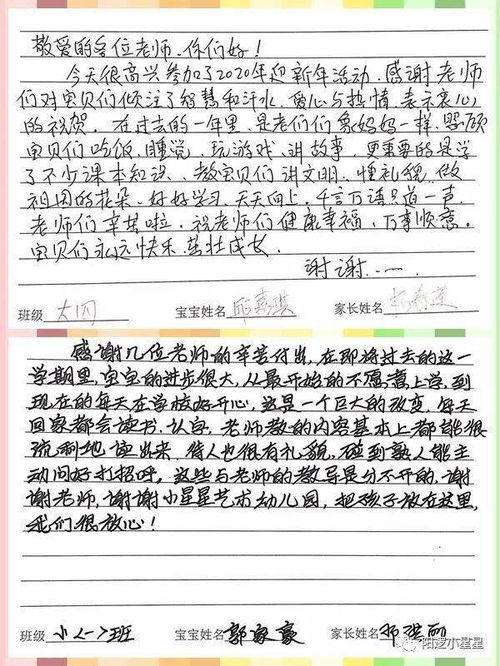 敬爱的各位老师.你们好！
今天很高兴参加了2020年迎新年活动.感谢老师
们对宝贝们倾注了智慧和汗水、爱心与热情.表示衷心
的祝贺.在过去的一年里.是老师们象妈妈一样.照顾
宝贝们吃饭.睡觉.玩游戏.讲故事.更重要的是学
了不少课本知识、教宝贝们讲文明.懂礼貌.做
祖国的花朵.好好学习.天天向上.千言万语只道一声.
老师们辛苦啦.祝老师们健康幸福.万事顺意.
宝贝们永远快乐.茁壮成长.
谢谢.……
班级 大 宝宝姓名 邱嘉琪 家长姓名
感谢几位老师的辛苦付出，在即将过去的这一
学期里，宝宝的进步很大，从最开始的不愿意上学，到
现在的每天在学校好开心，这是一个巨大的改变，每天
回家都会读书.认字，老师教的内容基本上都能很
流利地读出来，待人也很有礼貌，碰到熟人能主
动问好打招呼，这些与老师的教导是分不开的，谢
谢老师，谢谢小星星艺术幼儿园，把孩子放在这里，
我们很放心！
班级 小<一>班 宝宝姓名 郭家豪 家长姓名 邓
阳逻小星星